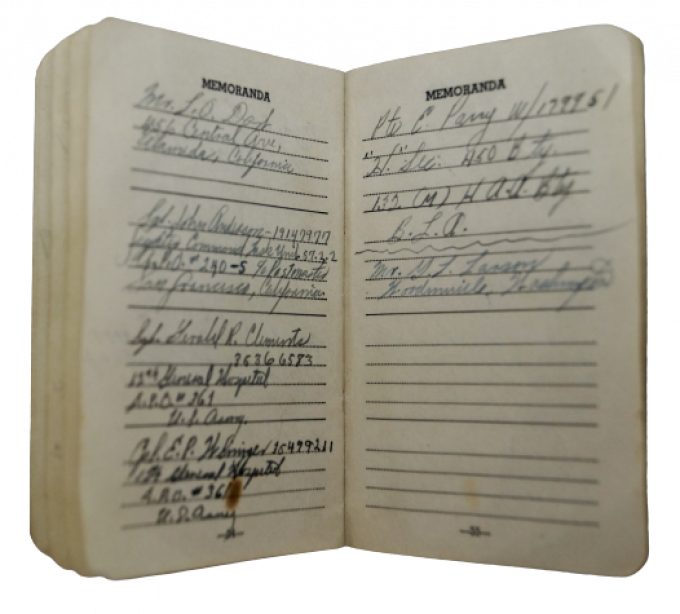 MEMORANDA
Mr. L.O. Day
456 Central Ave,
Alameda, California
Sgt. John Anderson - 19147977
Command Task Unit 57.2.2
A.P.O. # 240-5 % Postmaster
San Francisco, California
Sgt. Gerald R. Clements
36366583
13th General Hospital
A.P.O. # 361
U.S. Army.
Cpl. E.P.
13th General Hospital
A.P.O. # 361
U.S. Army
MEMORANDA
Pte E. Parry W/179951
"H" Sec. 460 Bty.
132 (M) H.A.A. Bty
B.L.A.
Mr. G.L. Larson
Woodinville, Washington
—35—